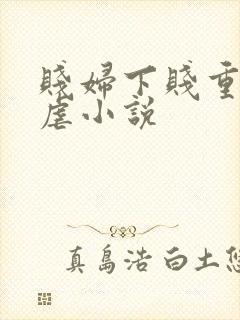 賤婦下賤重
虐小說
真島浩 白土悠